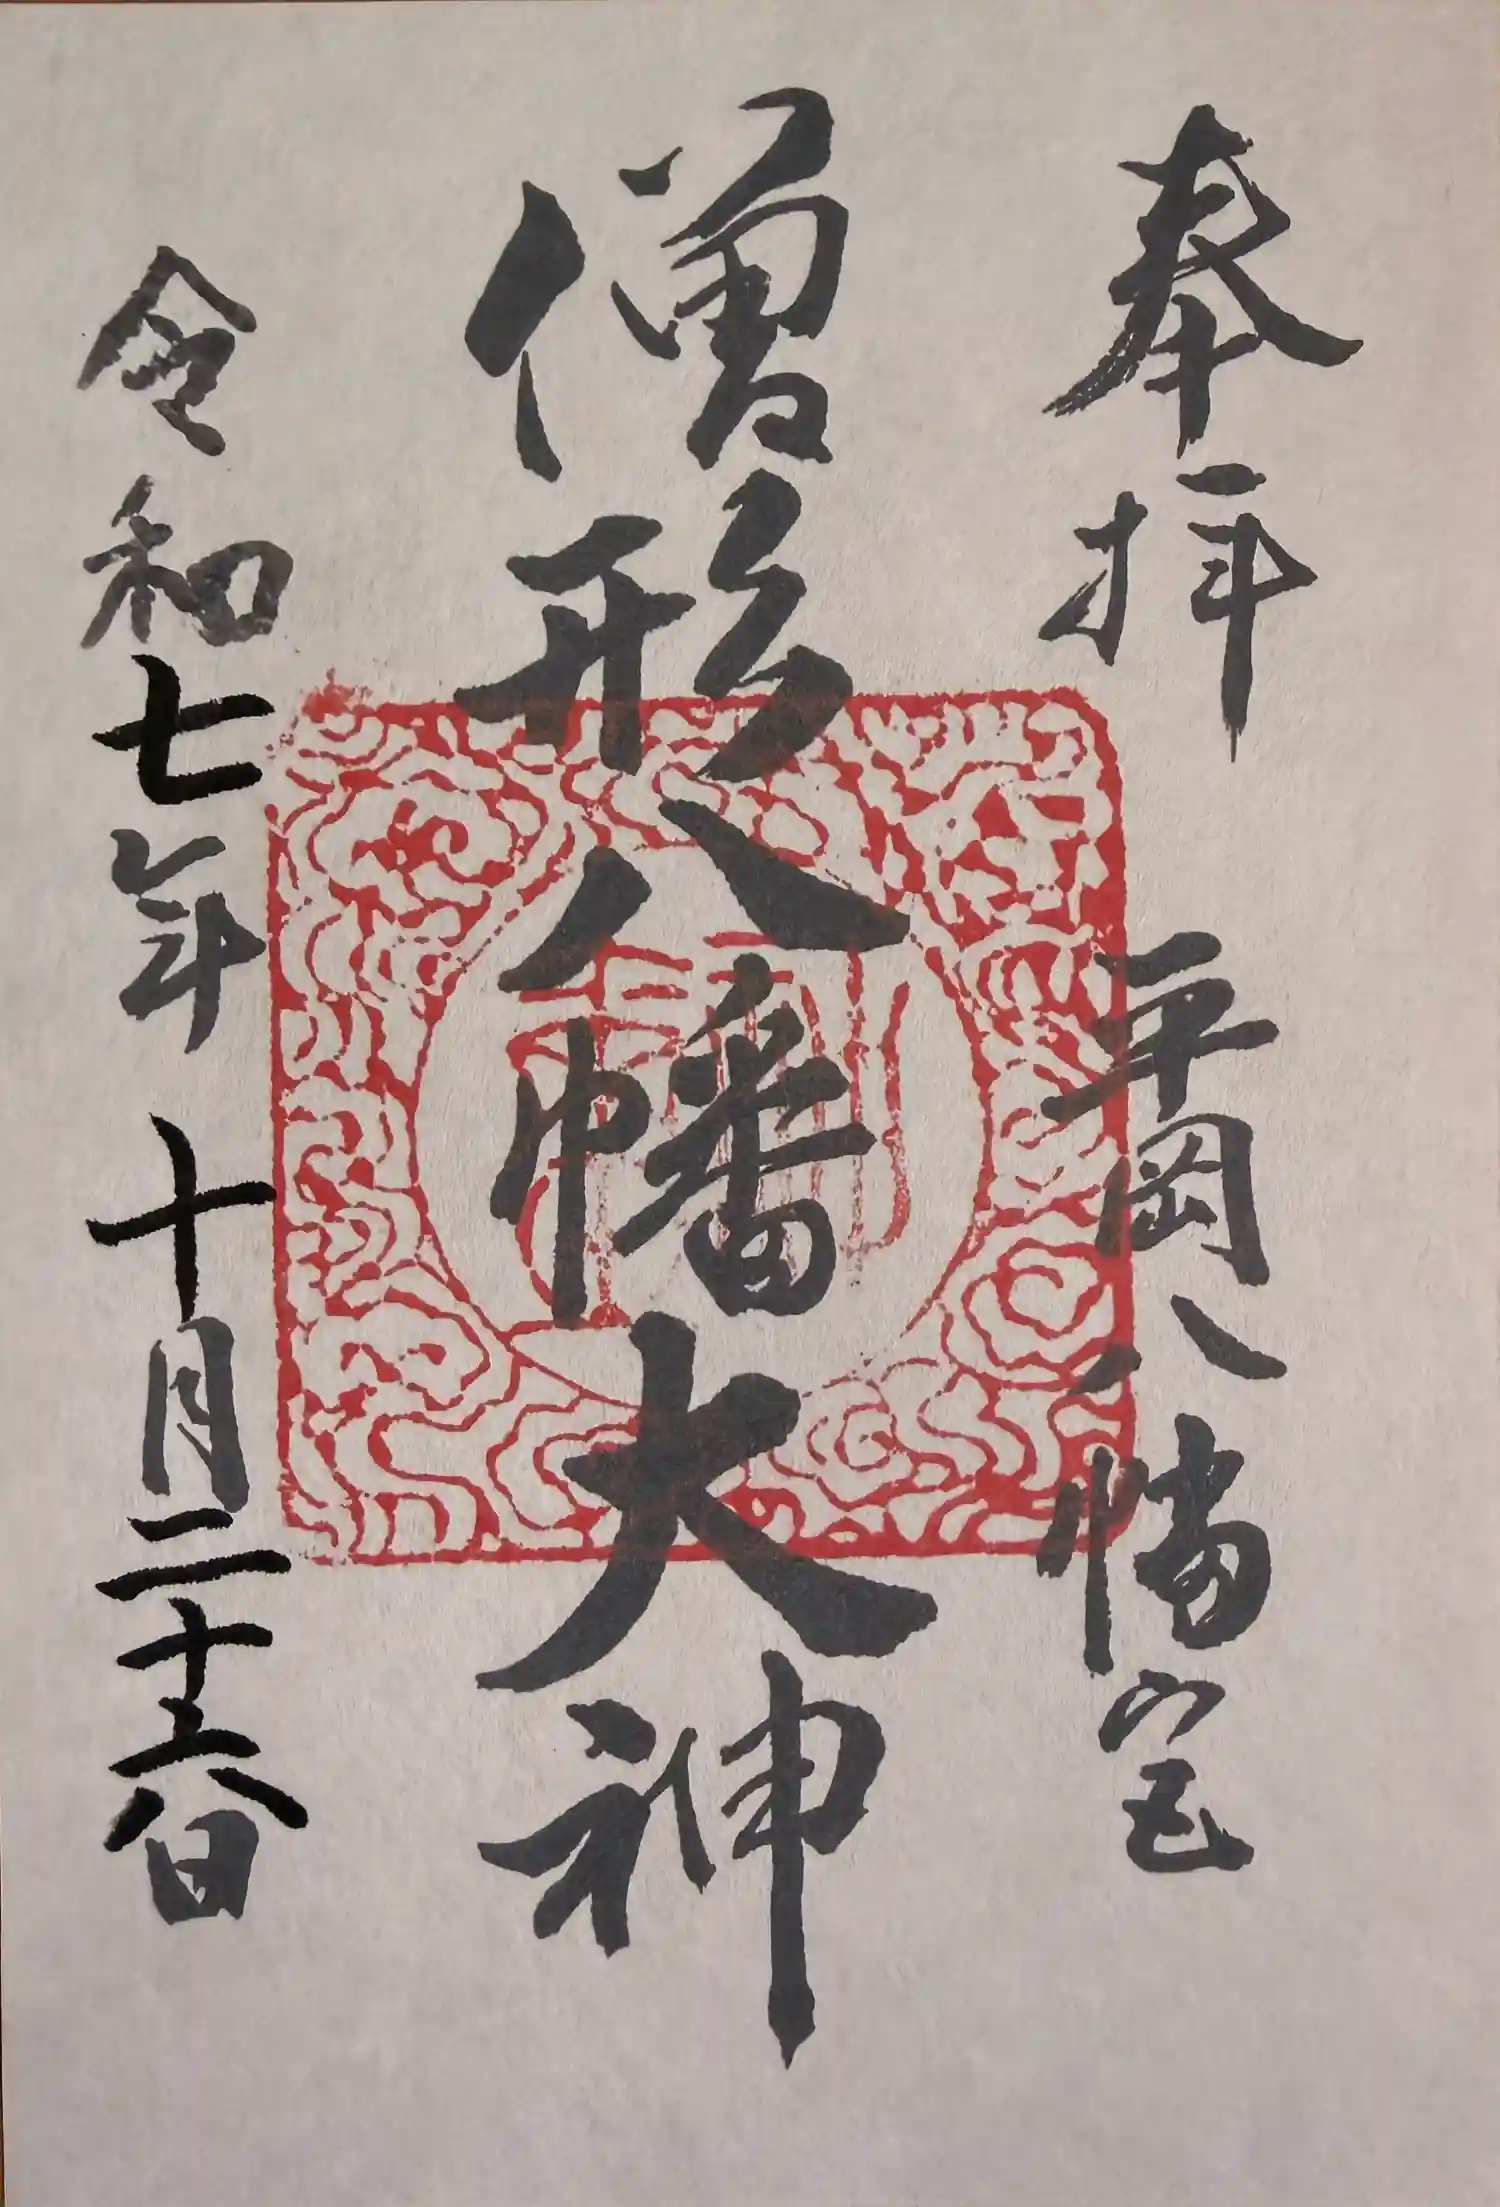 奉拝　平岡八幡宮
僧形八幡大神
令和七年十月二十六日